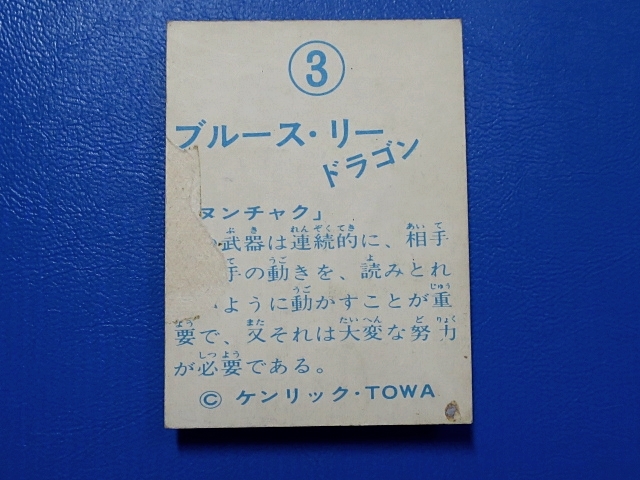 ③
ブルース・リー
ドラゴン
ヌンチャク」
武器は連続的に、相手
手の動きを、読みとれ
ように動かすことが重
要で、又それは大変な努力
が必要である。
© ケンリック・TOWA